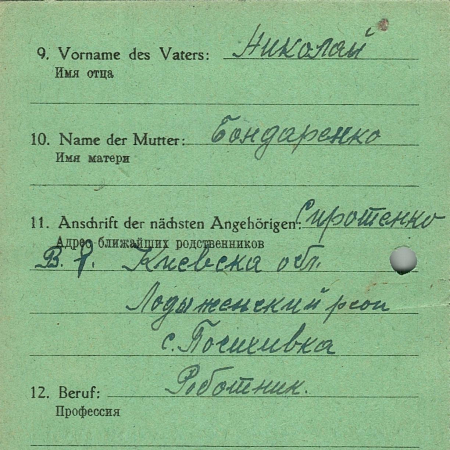 9. Vorname des Vaters: Николай
Имя отца
10. Name der Mutter: Бондаренко
Имя матери
11. Anschrift der nächsten Angehörigen: Сиротенко
Адрес ближайших родственников
В. Я. Киевска обл.
Лодыженский
с. Посиховка
12. Beruf: Роботник.
Профессия